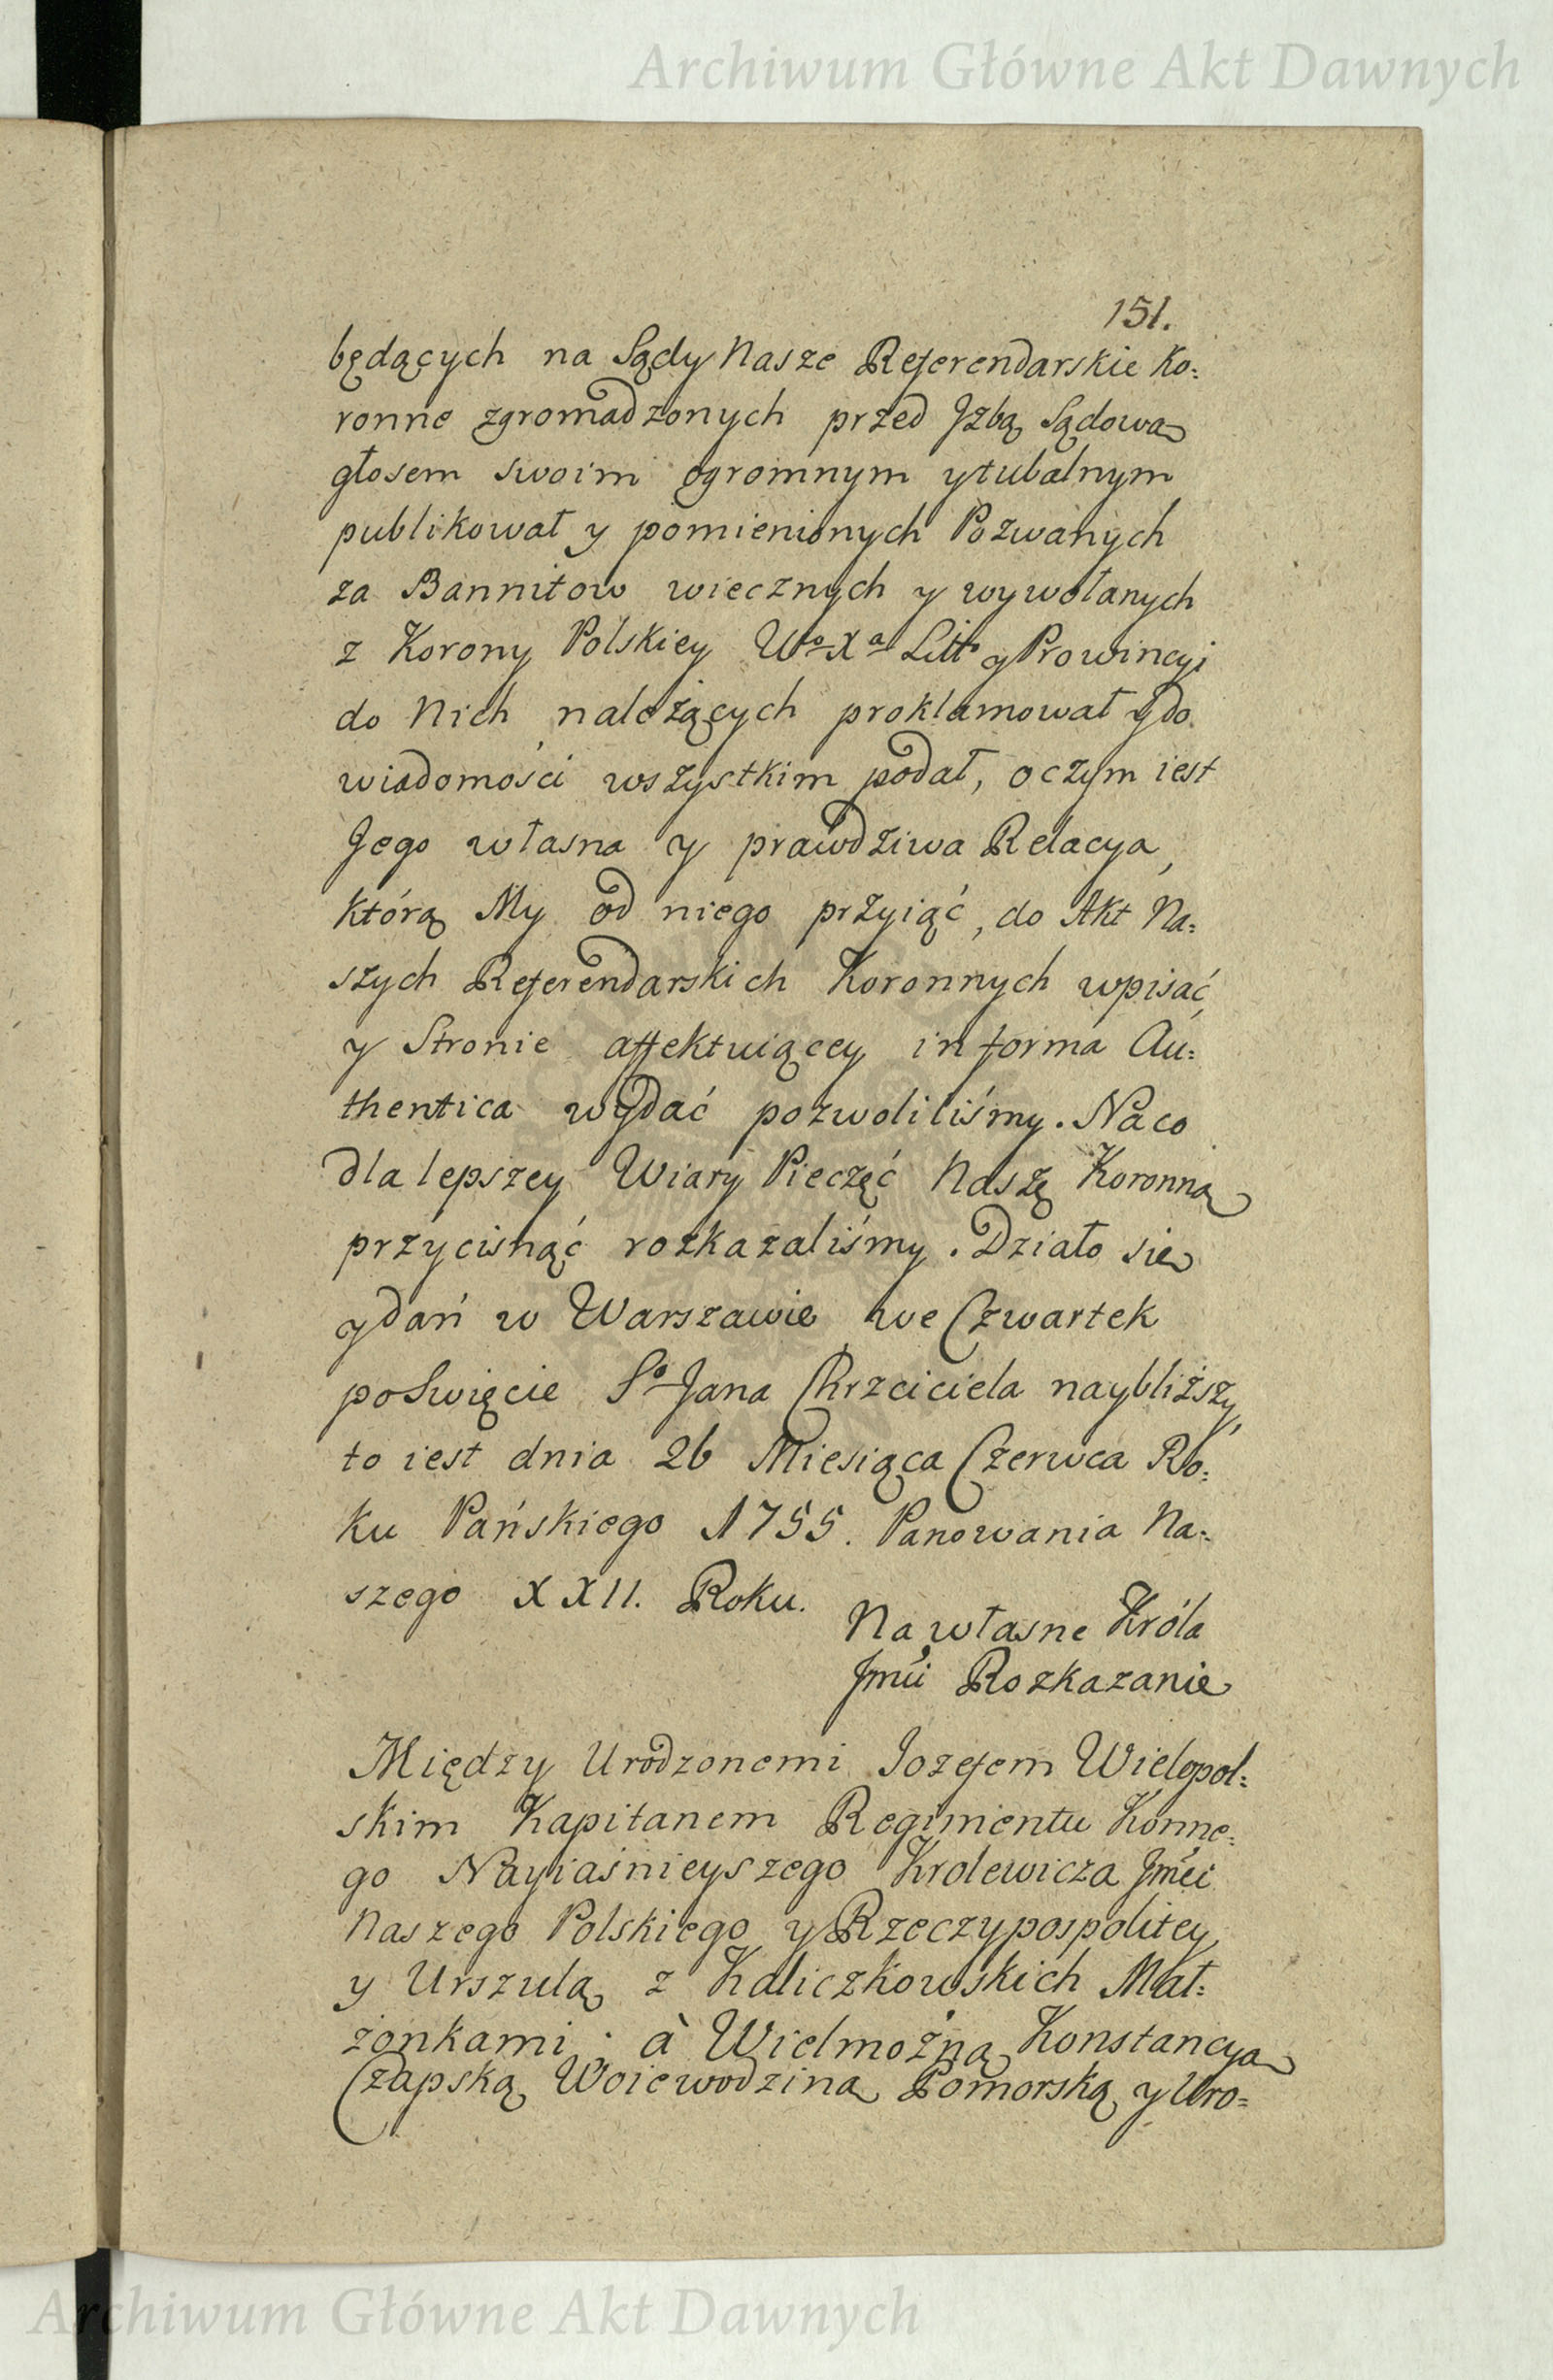 Archiwum Główne Akt Dawnych
151.
będących na Sądy Nasze Referendarskie Ko:
ronne zgromadzonych przed Jzbą Sądową
głosem swoim ogromnym y tubalnym
publikował y pomienionych Pozwanych
za Bannitow wiecznych y wywołanych
z Korony Polskiey Wo Xa Litto y Prowincyi
do Nich należących proklamował y do
wiadomości wszystkim podał, o czym iest
Jego własna y prawdziwa Relacya,
którą My od niego przyiąć, do Akt Na:
szych Referendarskich Koronnych wpisać,
y Stronie affektuiącey in forma Au:
thentica wydać pozwoliliśmy. Na co
dla lepszey Wiary Pieczęć Naszę Koronną
przycisnąć rozkazaliśmy. Działo się
y dań w Warszawie we Czwartek
po Swięcie So Jana Chrzciciela naybliższy,
to iest dnia 26 Miesiąca Czerwca Ro:
ku Pańskiego 1755. Panowania Na:
szego XXII. Roku.
Na własne Króla
Jmći Rozkazanie
Między Urodzonemi Jozefem Wielopol:
skim Kapitanem Regimentu Konne:
go Nayiaśnieyszego Krolewicza Jmći
Naszego Polskiego y Rzeczypospolitey
y Urszulą z Kaliczkowskich Mał:
żonkami: à Wielmożną Konstancyą
Czapską Woiewodziną Pomorską y Uro=
Archiwum Główne Akt Dawnych